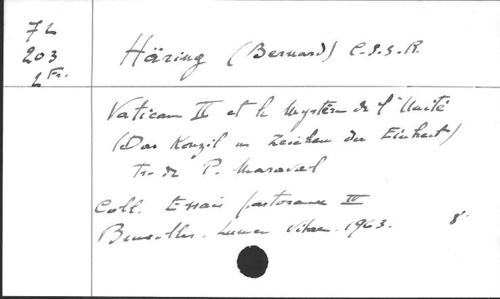 72
203
2 Fr.
Häring (Bernard) C.S.S.R.
Vatican II et le Mystère de l'Unité
(Das Konzil im Zeichen der Einheit)
Tr. de P. Maraval
Coll. Essais pastoraux IV
Bruxelles. Lumen Vitae. 1963. 8°